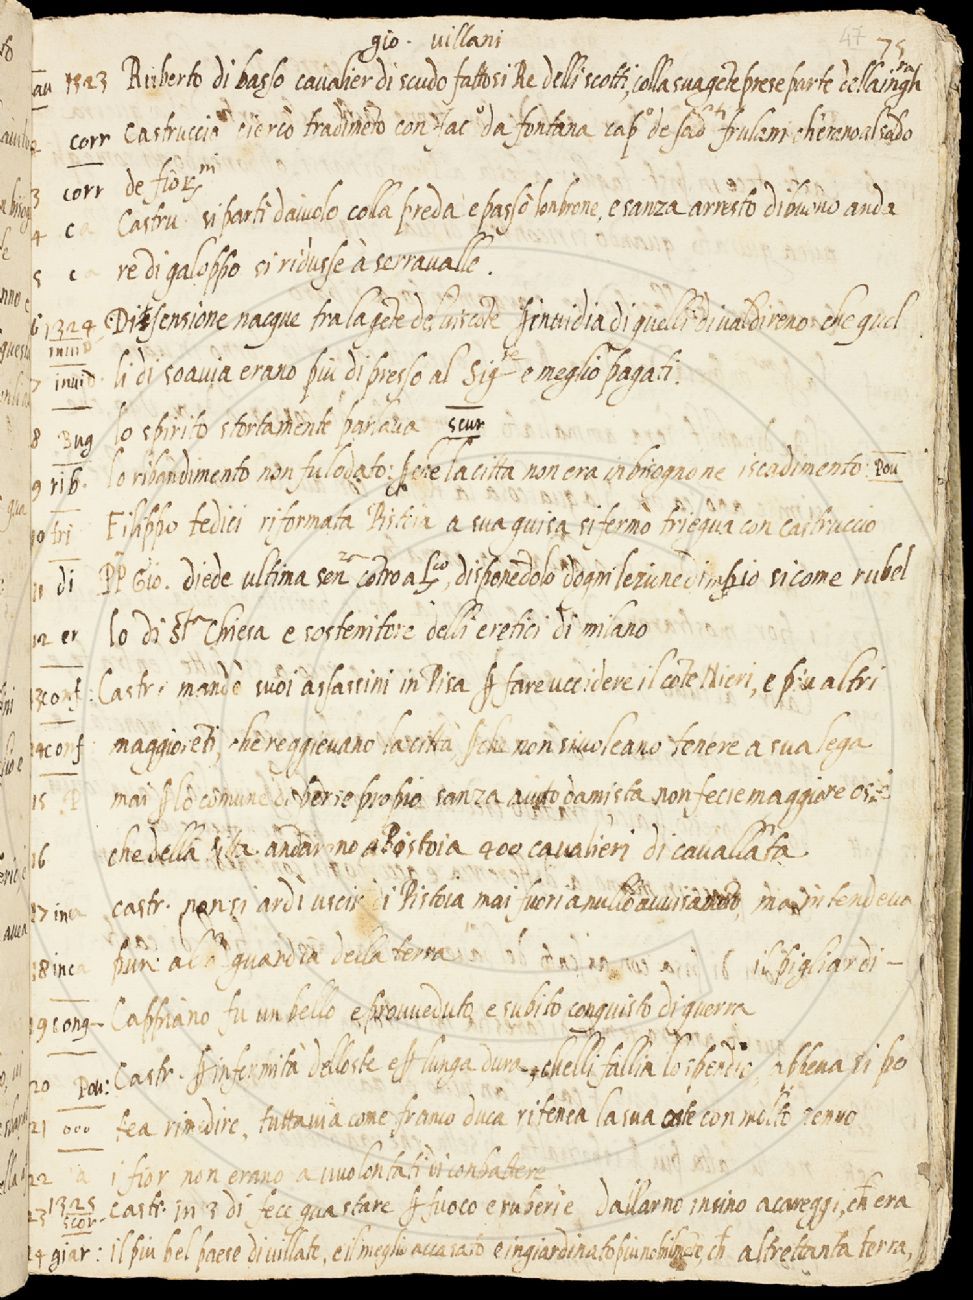 gio. villani
47 75
au 1323 Ruberto di basso cavalier di scudo fattosi Re delli scotti, colla sua gēte prese parte della ingh
2 corr Castruccio cierco tradimēto con Iac° da fontana cap° de sad frulani ch'erano al sodo
3 corr de fior
4 ca Castru. si partì da volo colla preda e passò lonbrone, e sanza arresto di buono anda
5 ca re di galoppo si ridusse à serravalle.
6 1324 Dissensione nacque tra la gēte invidia di quelli di valdireno che quel
invid
7 invid. li di soavia erano più di presso al Sig.re e meglio pagati.
8 Bug lo spirito stortamēte parlava scur
9 rib. lo ribandimento non fu lodato: la citta non era in bisogno ne iscadimento: Pou
10 tri Filippo tedici riformata Pistoia a sua guisa si fermo triegua con castruccio
11 di PP Gio. diede ultima sen.za cōtro a , disponēdolo d'ogni lezione d'imp.io sicome rubel
12 er lo di S.ta Chiesa e sostenitore delli eretici di milano
13 conf: Castr. mandò suoi assassini in Pisa fare uccidere il cōte Nieri, e più altri
14 conf maggiorēti, che reggievano la città non si voleano tenere a sua lega
15 P mai lo comune di per se propio sanza aiuto d'amista non fecie maggiore
16 che della andarono a Pistoia 400 cavalieri di cavallata
17 inca castr. non si ardì uscir di Pistoia mai fuori a nullo avvisamēto, ma intendeva
18 inca pure alla guardia della terra il pigliar di –
19 cong– Cappiano fu un bello e provveduto e subito conquisto di guerra
20 Pou: Castr. infermità dell'oste e lunga dura, e chelli fallia lo spēdio, appena si po
21 ooo tea rimedire, tuttavia come franco duca ritenea la sua oste con molto senno
22 a i fior non erano a uvolontati di conbatere
23 1325 Castr. in 3 di fece guastare fuoco e ruberie dall'arno insino a careggi, ch era
scor
24 giar: il più bel paese di villate, e il meglio accasato e ingiardinato più nobilmēte, ch altrettanta terra,